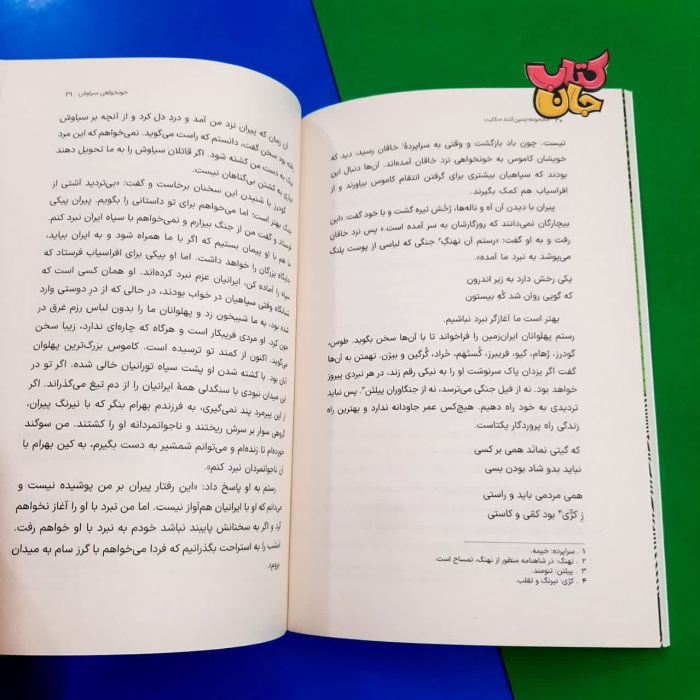 کتاب
جان
۳۰ مجموعه چنین کنند حکایت
نیست. چون باد بازگشت و وقتی به سراپردهٔ۱ خاقان رسید، دید که
خویشان کاموس به خونخواهی نزد خاقان آمده‌اند. آن‌ها دنبال این
بودند که سپاهیان بیشتری برای گرفتن انتقام کاموس بیاورند و از
افراسیاب هم کمک بگیرند.
پیران با دیدن آن آه و ناله‌ها، رَخَش تیره گشت و با خود گفت: «این
بیچارگان نمی‌دانند که روزگارشان به سر آمده است.» پس نزد خاقان
رفت و به او گفت: «رستم آن نهنگِ۲ جنگی که لباسی از پوست پلنگ
می‌پوشد به نبرد ما آمده».
یکی رخش دارد به زیر اندرون
که گویی روان شد کُهِ بیستون
بهتر است ما آغازگر نبرد نباشیم.
رستم پهلوانان ایران‌زمین را فراخواند تا با آن‌ها سخن بگوید. طوس،
گودرز، رُهام، گیو، فریبرز، گُستَهَم، خُراد، گُرگین و بیژن. تهمتن به آن‌ها
گفت اگر یزدان پاک سرنوشت او را به نیکی رقم زند، در هر نبردی پیروز
خواهد بود. نه از فیل جنگی می‌ترسد، نه از جنگاوران پیلتن۳. پس نباید
تردیدی به خود راه دهیم. هیچ‌کس عمر جاودانه ندارد و بهترین راه
زندگی راه پروردگار یکتاست.
که گیتی نمانَد همی بر کسی
نباید بدو شاد بودن بسی
همی مردمی باید و راستی
زِ کژّی۴ بود کمّی و کاستی
۱ . سراپرده: خیمه.
۲ . نهنگ: در شاهنامه منظور از نهنگ، تمساح است.
۳ . پیلتن: تنومند.
۴ . کژی: نیرنگ و تقلب.
خونخواهی سیاوش ۳۱
آن زمان که پیران نزد من آمد و درد دل کرد و از آنچه بر سیاوش
رفته بود سخن گفت، دانستم که راست می‌گوید. نمی‌خواهم که این مرد
نیک به دست من کشته شود. اگر قاتلان سیاوش را به ما تحویل دهند
نیازی به کشتن بی‌گناهان نیست.
گودرز با شنیدن این سخنان برخاست و گفت: «بی‌تردید آشتی از
جنگ بهتر است؛ اما می‌خواهم برای تو داستانی را بگویم. پیران پیکی
فرستاد و گفت من از جنگ بیزارم و نمی‌خواهم با سپاه ایران نبرد کنم.
ما هم با او پیمان بستیم که اگر با ما همراه شود و به ایران بیاید،
جایگاه بزرگان را خواهد داشت. اما او پیکی برای افراسیاب فرستاد که
سپاه را آماده کن، ایرانیان عزم نبرد کرده‌اند. او همان کسی است که
شبانگاه وقتی سپاهیان در خواب بودند، در حالی که از درِ دوستی وارد
شده بود، به ما شبیخون زد و پهلوانان ما را بدون لباس رزم غرق در
خون کرد. او مردی فریبکار است و هرگاه که چاره‌ای ندارد، زیبا سخن
می‌گوید. اکنون از کمند تو ترسیده است. کاموس بزرگ‌ترین پهلوان
آنان بود. با کشته شدن او پشت سپاه تورانیان خالی شده. اگر تو در
این میدان نبودی با سنگدلی همهٔ ایرانیان را از دم تیغ می‌گذراند. اگر
از این پیرمرد پند نمی‌گیری، به فرزندم بهرام بنگر که با نیرنگ پیران،
گروهی سوار بر سرش ریختند و ناجوانمردانه او را کشتند. من سوگند
خورده‌ام تا زنده‌ام و می‌توانم شمشیر به دست بگیرم، به کین بهرام با
آن ناجوانمردان نبرد کنم».
رستم به او پاسخ داد: «این رفتار پیران بر من پوشیده نیست و
می‌دانم که او با ایرانیان هم‌آواز نیست. اما من نبرد با او را آغاز نخواهم
کرد و اگر به سخنانش پایبند نباشد خودم به نبرد با او خواهم رفت.
امشب را به استراحت بگذرانیم که فردا می‌خواهم با گرز سام به میدان
بروم».